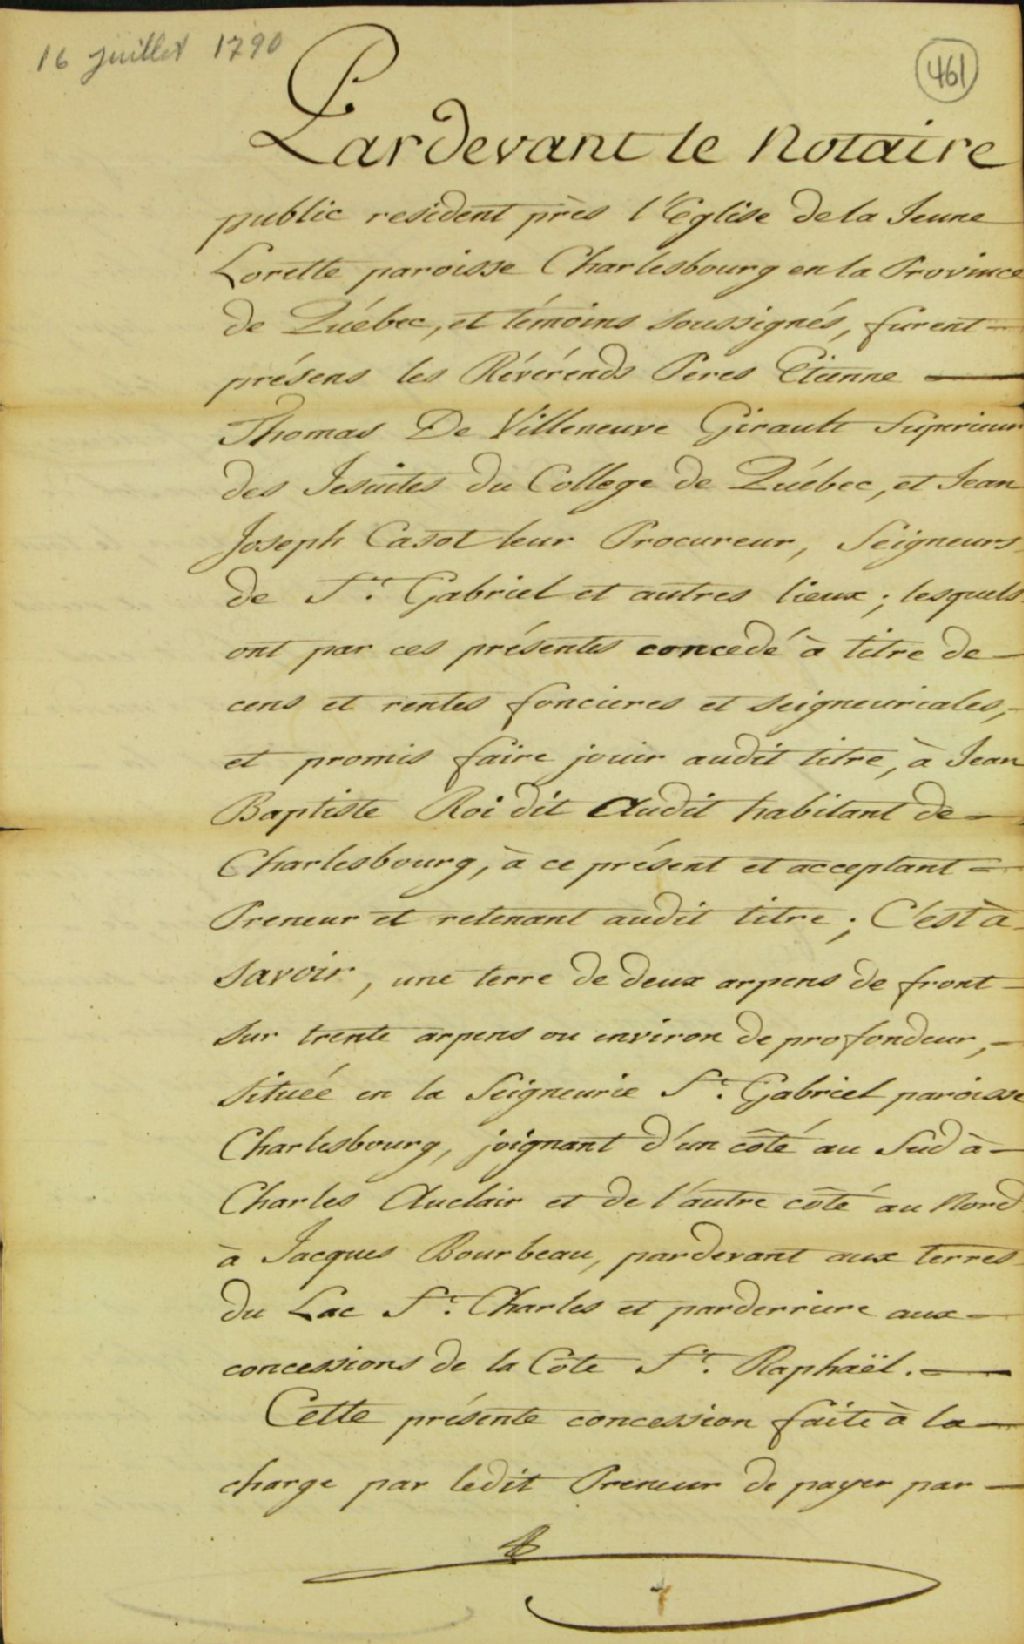 16 juillet 1790
461
Pardevant le Notaire
public resident près l'Eglise de la Jeune
Lorette paroisse Charlesbourg en la Province
de Québec, et témoins soussignés, furent
présens les Révérends Peres Etienne
Thomas De Villeneuve Girault Superieur
des Jesuites du College de Québec, et Jean
Joseph Casot leur Procureur, Seigneurs
de St. Gabriel et autres lieux; lesquels
ont par ces présentes concedé à titre de
cens et rentes foncieres et seigneuriales,
et promis faire jouir audit titre, à Jean
Baptiste Roi dit Audit habitant de
Charlesbourg, à ce présent et acceptant
Preneur et retenant audit titre; C'est à
Savoir, une terre de deux arpens de front
sur trente arpens ou environ de profondeur,
située en la Seigneurie St. Gabriel paroisse
Charlesbourg, joignant d'un côté au Sud à
Charles Auclair et de l'autre côté au Nord
à Jacques Bourbeau, pardevant aux terres
du Lac St. Charles et parderriere aux
concessions de la Côte St. Raphaël.
Cette présente concession faite à la
charge par ledit Preneur de payer par